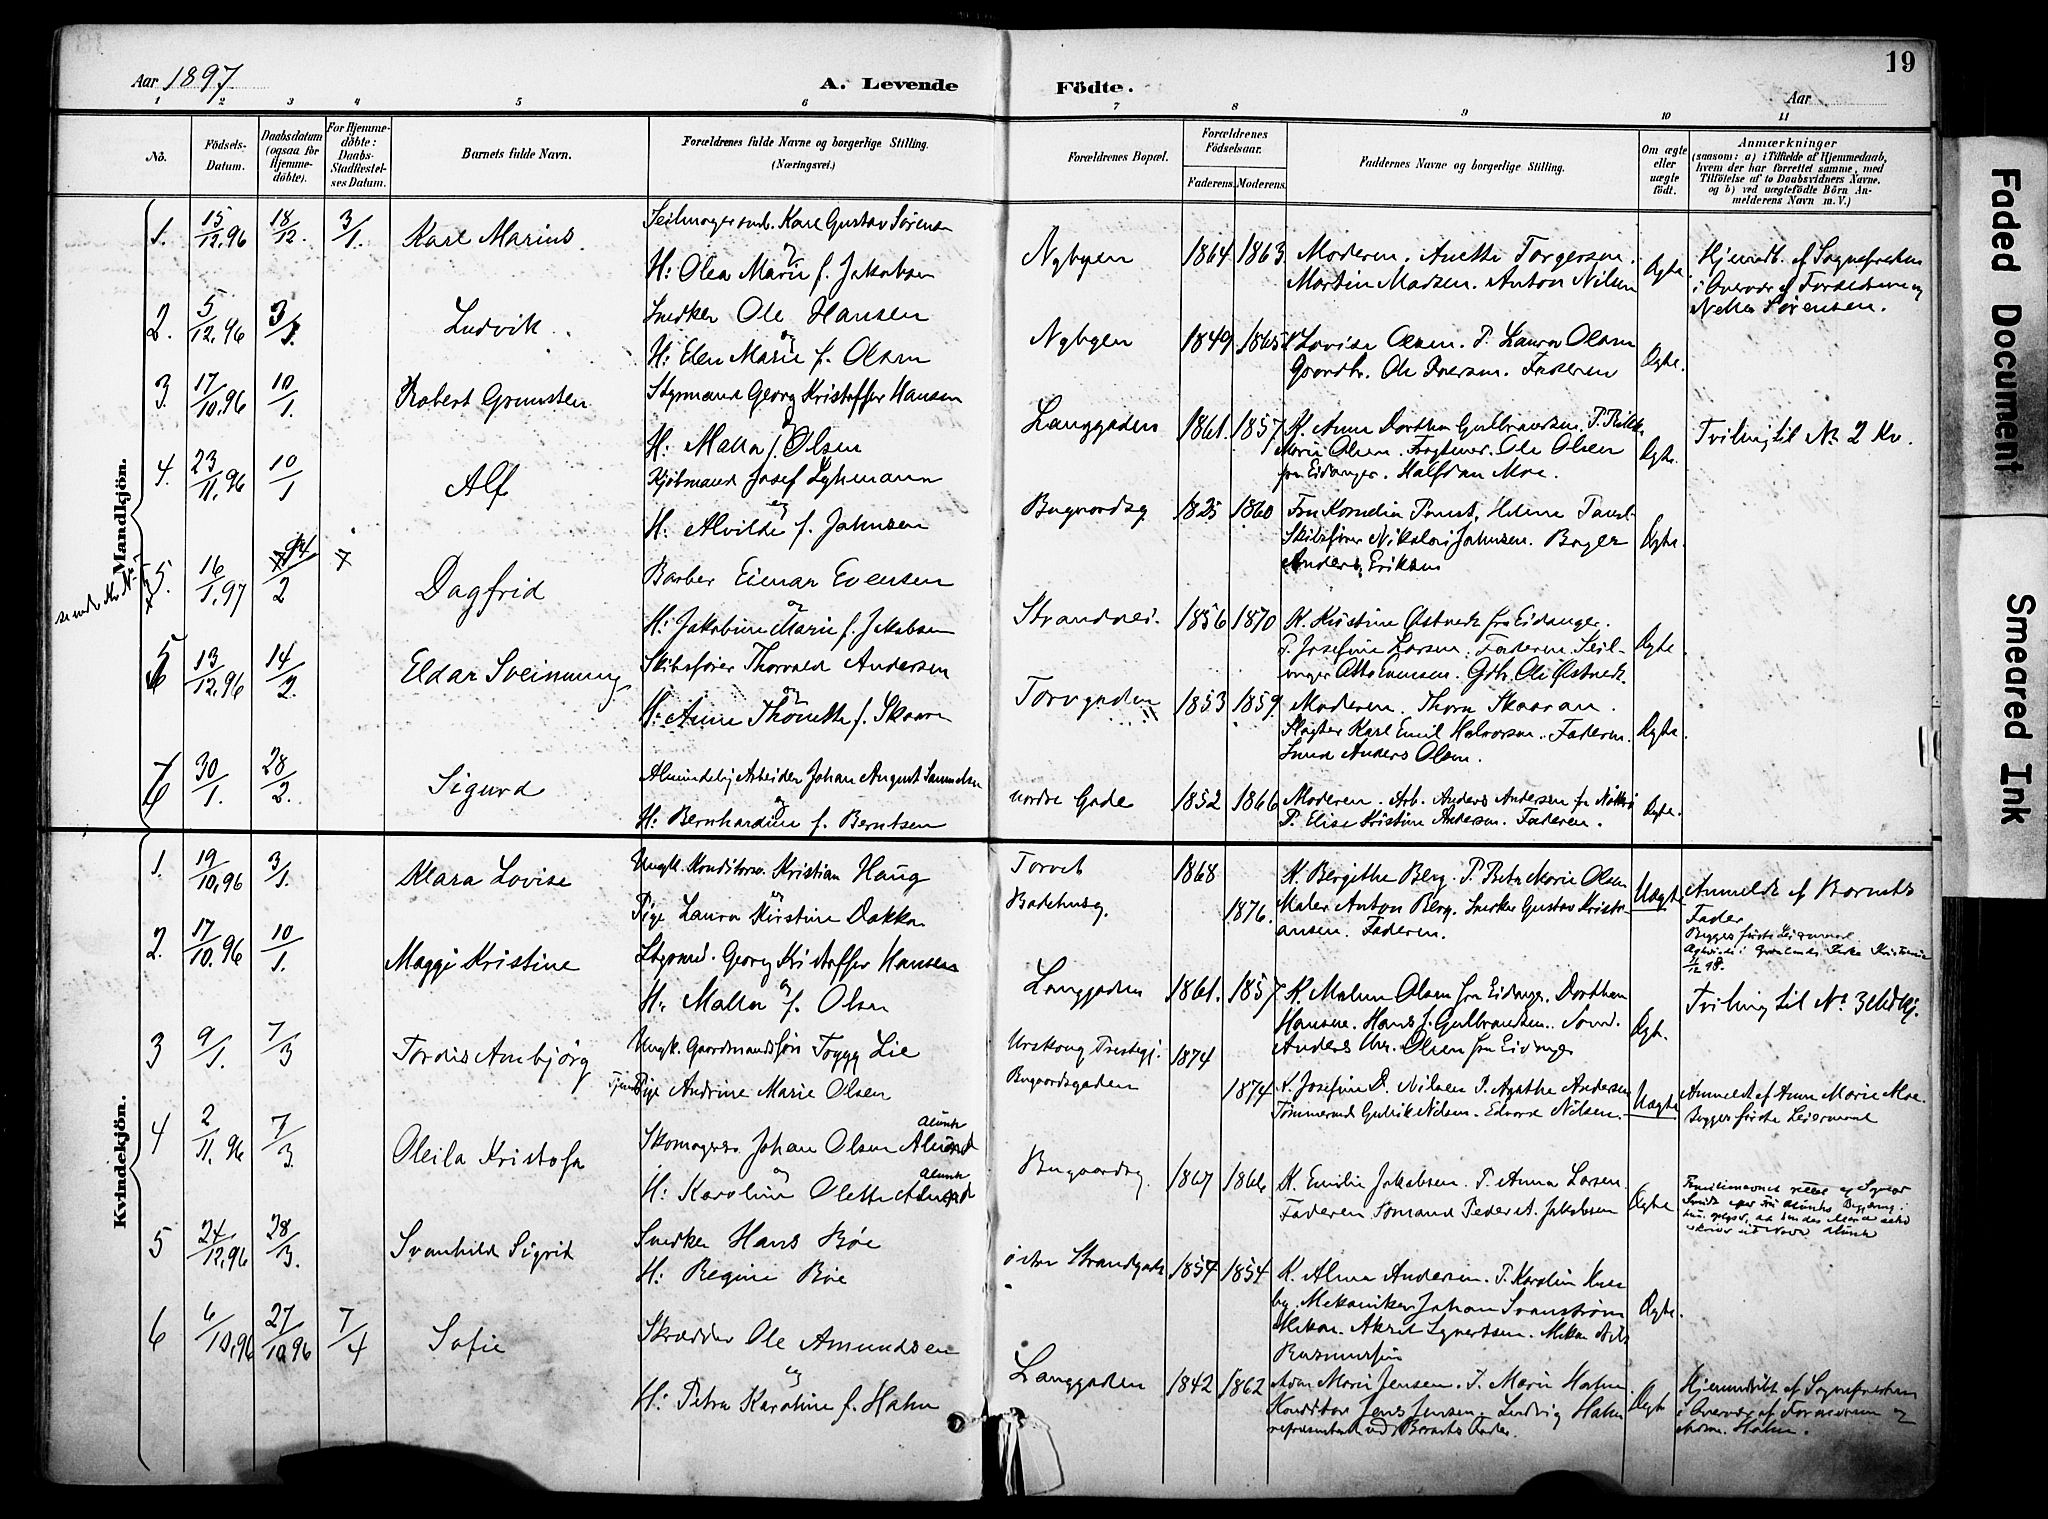 19
Aar 1897.
A. Levende
Födte.
Aar
1 2 3 4 5 6 7 8 9 10 11
No.
Födsels-
Datum.
Daabsdatum
(ogsaa for
Hjemme-
döbte).
For Hjemme-
döbte:
Daabs-
Stadfæstel-
ses Datum.
Barnets fulde Navn.
Forældrenes fulde Navne og borgerlige Stilling.
(Næringsvei.)
Forældrenes Bopæl.
Forældrenes
Födselsaar.
Faderens. Moderens.
Faddernes Navne og borgerlige Stilling.
Om ægte
eller
uægte
födt.
Anmærkninger
(saasom: a) i Tilfælde af Hjemmedaab,
hvem der har forrettet samme, med
Tilföielse af to Daabsvidners Navne,
og b) ved uægtefödte Börn An-
melderens Navn m. V.)
Mandkjön.
1. 15/12.96 18/12. 3/1. Karl Marius.
Karl Gustav Sørensen
og
H: Olea Marie f. Jakobsen
Nybyen 1864 1863 Moderen. Anette Torgersen.
Martin Madsen. Anton Nilsen
Ægte
Nelle Sørensen.
2. 5/12.96 3/1. Ludvik.
Snedker Ole Hansen
og
H: Elen Marie f. Olsen
Nybyen 1849 1865 Lovise Olsen. P. Laura Olsen
Ole Iversen. Faderen
Ægte.
3. 17/10.96 10/1. Robert Grunsten
Styrmand Georg Kristoffer Hansen
og
H: Malla f. Olsen
Langgaden 1861. 1857 K. Anne Dorthea Gulbrandsen.
Marie Olsen. Ole Olsen
fra Eidanger. Halfdan Moe.
Ægte.
Tvilling til No 2 Kv.
4. 23/11.96 10/1 Alf
Kjöbmand Josef Lyhmann
og
H: Alvilde f. Jahnsen
Bugaardsg. 1825 1860 Fru Kornelia Paust, Helene Paust
Skibsfører Nikolai Jahnsen. Bager
Anders Eriksen
Ægte.
5. 16/1.97 14/2 Dagfrid
Barber Einar Evensen
og
H: Jakobine Marie f. Jakobsen
Strandvei. 1856 1870 K. Kristine Østvedt fra Eidanger.
P. Josefine Larsen. Faderen. Seil-
mager Otto Evensen. Gdbr. Ole Østvedt.
Ægte.
5 13/12.96 14/2. Eldar Sveinung
Skibsfører Thorvald Andersen
og
H: Anne Thonette f. Skaaran
Torvgaden 1853 1859 Moderen. Thora Skaaran.
Slagter Karl Emil Halvorsen. Faderen.
Smed Anders Olsen.
Ægte.
6 30/1. 28/2. Sigurd
Almindelig Arbeider Johan August Samuelsen
og
H: Bernhardine f. Berntsen
nordre Gade 1852 1866 Moderen. Arb. Anders Andersen
P. Elise Kristine Andersen. Faderen.
Ægte.
Kvindekjön.
1. 19/10.96 3/1. Klara Lovise
Ungk. Konditorsv. Kristian Haug
og
Pige Laura Kirstine Dakka
Torvet
Badehusg. 1868 1876. K. Bergithe Berg. P. Marie Olsen
Maler Anton Berg. Snedker Gustav Kristi-
ansen. Faderen.
Uægte
Anmeldt af Barnets
Fader
Begges første Leiermaal
2. 17/10.96 10/1. Maggi Kristine
Styrmd. Georg Kristoffer Hansen
og
H: Malla f. Olsen
Langgaden 1861. 1857 K. Malene Olsen fra Eidanger. Dorthea
Hansen. Hans J. Gulbrandsen.
Anders Olsen fra Eidanger
Ægte.
Tvilling til No 3 Mdkj.
3 9/1. 7/3 Tordis Ambjörg
Ungk. Gaardmandssön Toygg Lie
Tjenestepige Andrine Marie Olsen
Urskoug Prestegj.
Bugaardsgaden 1874 1874 K. Josefine D. Nilsen P. Agathe Andersen
Tömmermd Gulrik Nilsen. Edvard Nilsen.
Uægte
Anmeldt af Anne Marie Moe.
Begges første Leiermaal
4 2/11.96 7/3. Oleila Kristofa
Skomagersv. Johan Olsen Alunth
og
H: Karoline Olette Alunth
Bugaardsg. 1867 1866 K. Emilie Jakobsen. P. Anna Larsen.
Faderen. Sømand Peder A. Jakobsen
Ægte
5 24/12.96 28/3. Svanhild Sigrid
Snedker Hans Bøe
H: Regine Bøe
østre Strandgade 1854 1854 K. Alma Andersen. P. Karoline Huse-
by. Mekaniker Johan Svanstrøm
Mekan. Aksel Syvertsen. Mekan. Nils
Rasmussen
Ægte.
6 6/10.96 27/10.96 7/4 Sofie
Skrædder Ole Amundsen
og
H: Petra Karoline f. Hahn
Langgaden 1842 1862 Marie Jensen. P. Marie Hahn.
Konditor Jens Jensen. Ludvig Hahn
repræsenteret ved Barnets Fader.
Ægte
Hjemmedöbt af Sognepresten
i Overvær af Forældrene og
Hahn.
Faded Document
Smeared Ink